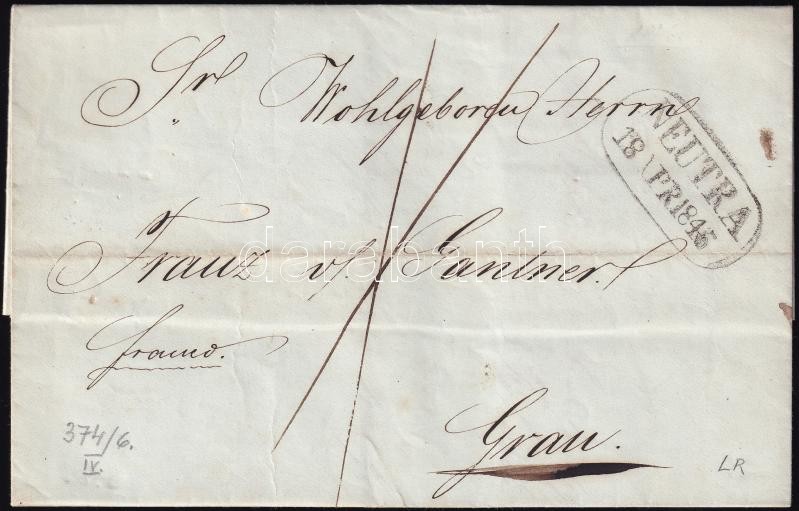 Sr Wohlgeboren Herrn
NEUTRA
18 APR 1845
Franz v. Gantner.
darabanth
franco.
Gran.
374/6.
IV.
LR